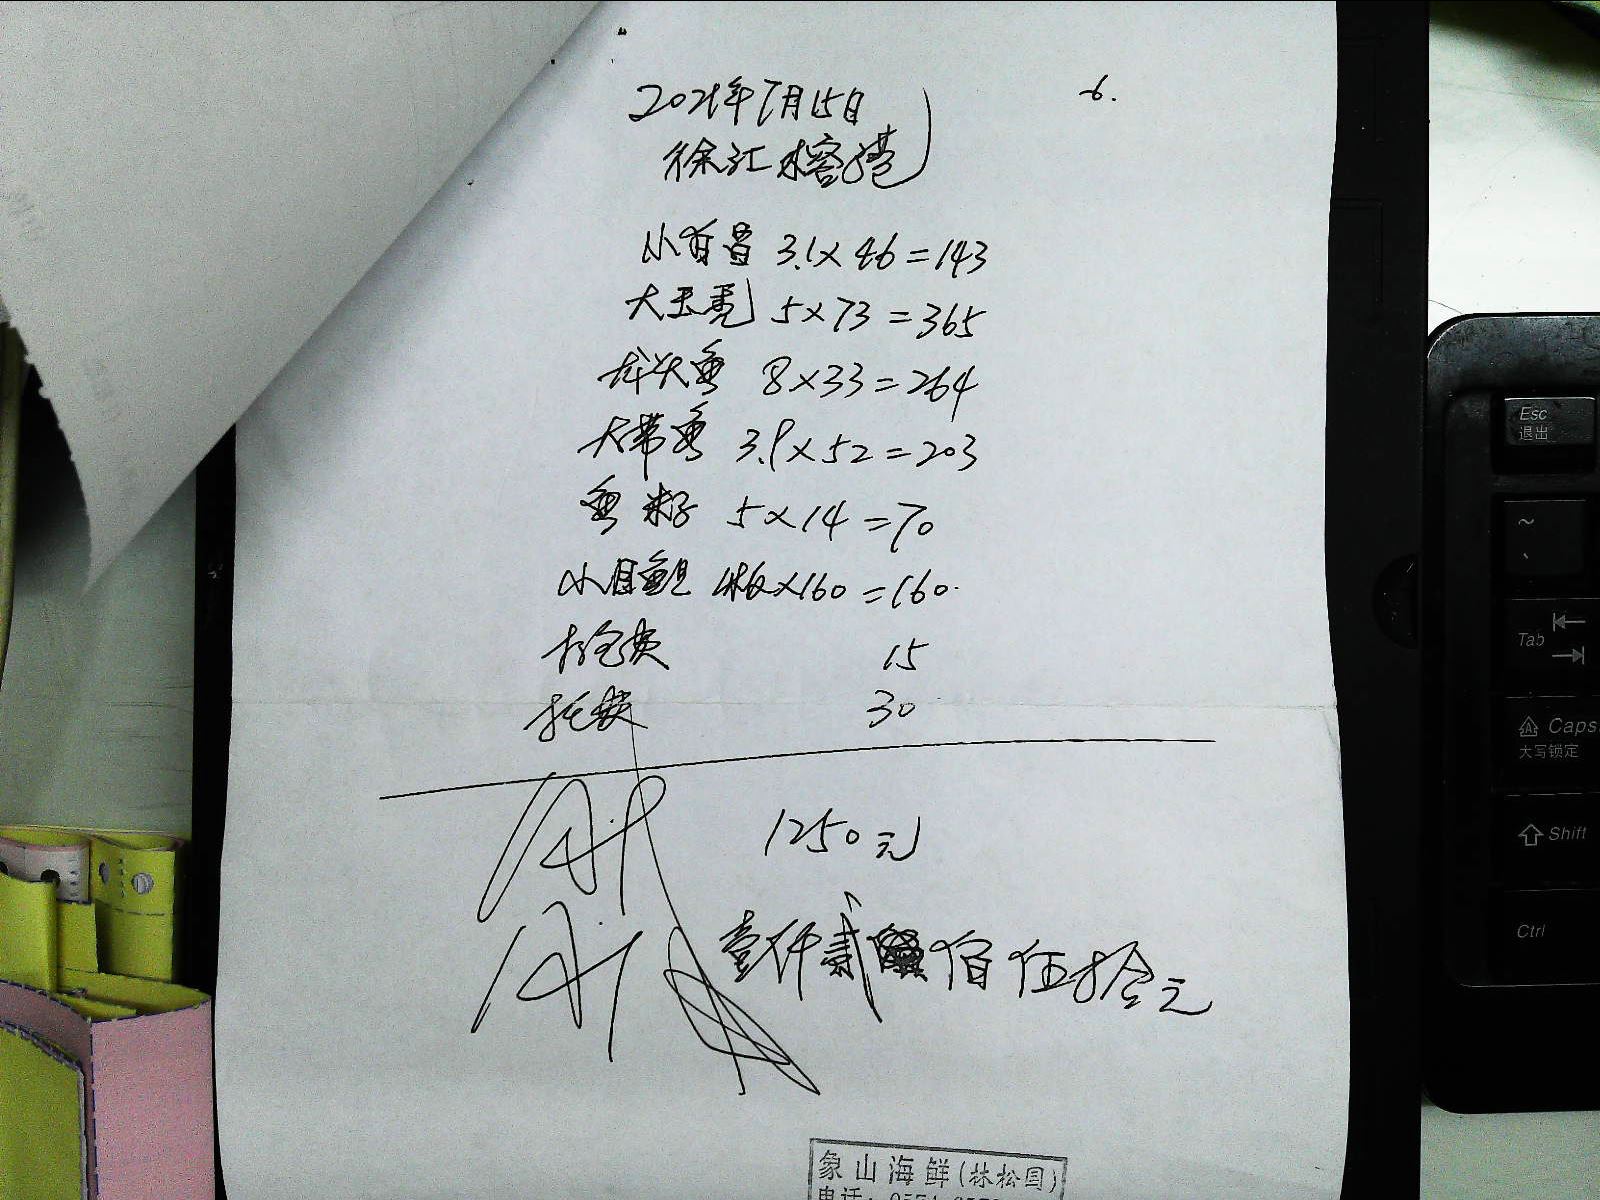 2021年7月15日
6.
徐汇榕港
小有昌 3.1×46=143
大玉秃 5×73=365
龙头鱼 8×33=264
大带鱼 3.9×52=203
鱼籽 5×14=70
小目鱼旦 1板×160=160.
打包费 15
托费 30
1250元
壹仟贰佰伍拾元
象山海鲜(林松国)
电话:
Esc
退出
~
Tab
Caps
大写锁定
Shift
Ctrl